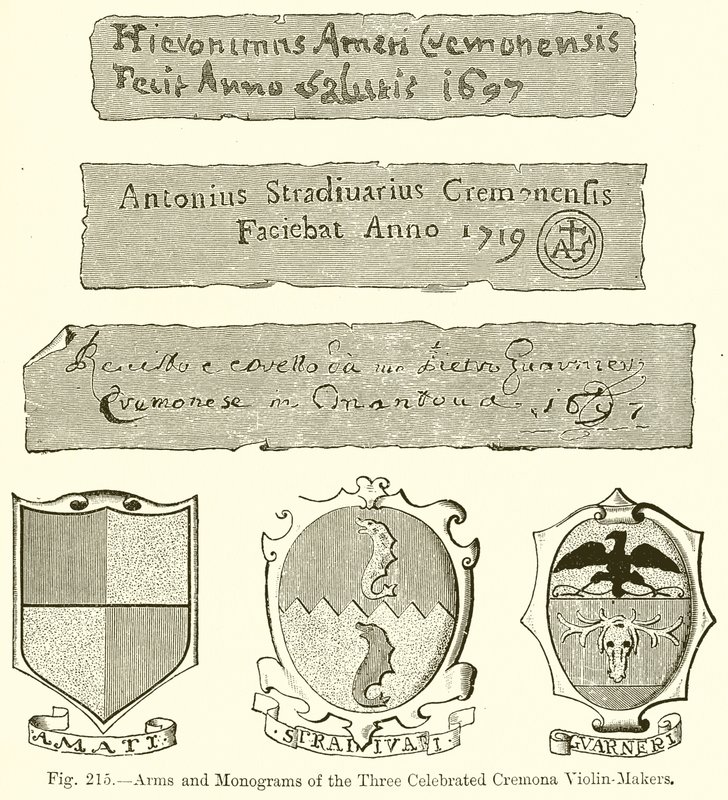 Hieronimus Amati Cremonensis
Fecit Anno Salutis 1697
Antonius Stradiuarius Cremonenſis
Faciebat Anno 1719
AS
Revisto e corretto da me Pietro Guarnieri
Cremonese in Mantoua 1697
AMATI
STRADIVARI
GVARNERI
Fig. 215.—Arms and Monograms of the Three Celebrated Cremona Violin-Makers.